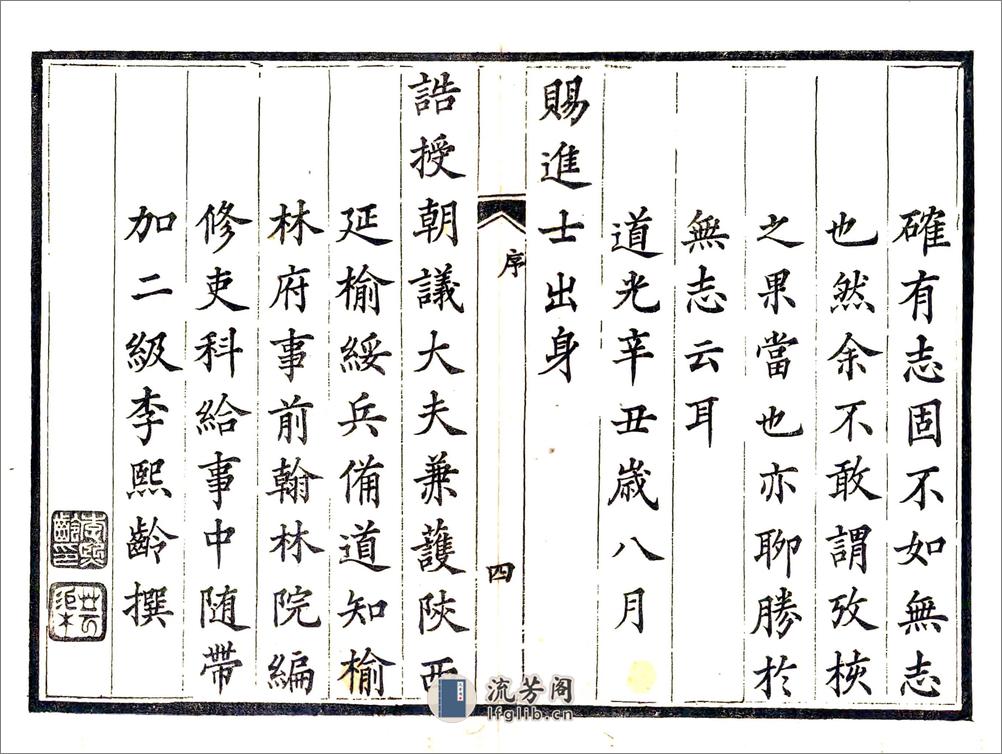 確有志固不如無志
也然余不敢謂攷核
之果當也亦聊勝於
無志云耳
道光辛丑歲八月
賜進士出身
序
四
誥授朝議大夫兼護陝西
延榆綏兵備道知榆
林府事前翰林院編
修吏科給事中随帶
加二級李熙齡撰
李熙齡印
流芳阁
lfglib.cn